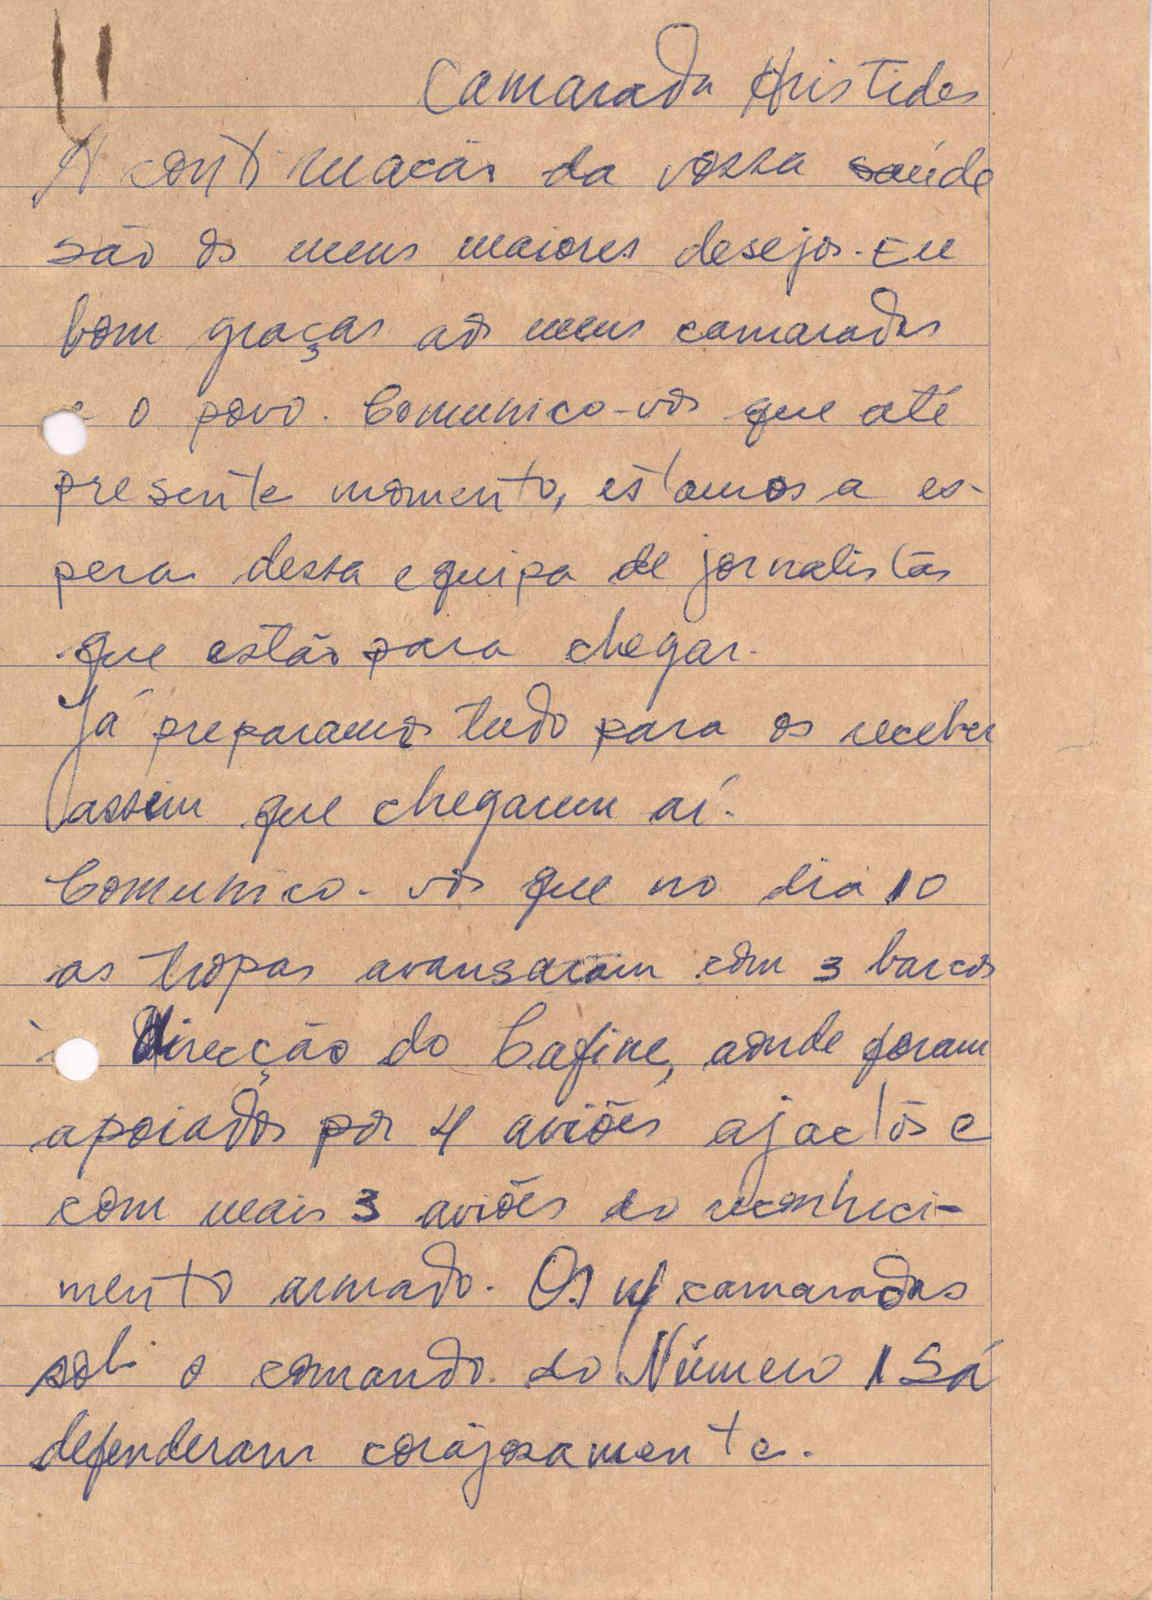 Camarada Aristides
A continuacão da vossa saúde
são os meus maiores desejos. Eu
bom graças aos meus camaradas
e o povo. Comunico-vos que até
presente momento, estamos a es-
pera dessa equipa de jornalistas
que estão para chegar.
Já preparamos tudo para os receber
assim que chegarem aí.
Comunico-vos que no dia 10
as tropas avansaram com 3 barcos
Direcção do Cafine, aonde foram
apoiados por 4 aviões ajactos e
com mais 3 aviões do reconheci-
mento armado. Os camaradas
sob o comando do Número 1 Sá
defenderam corájosamente.